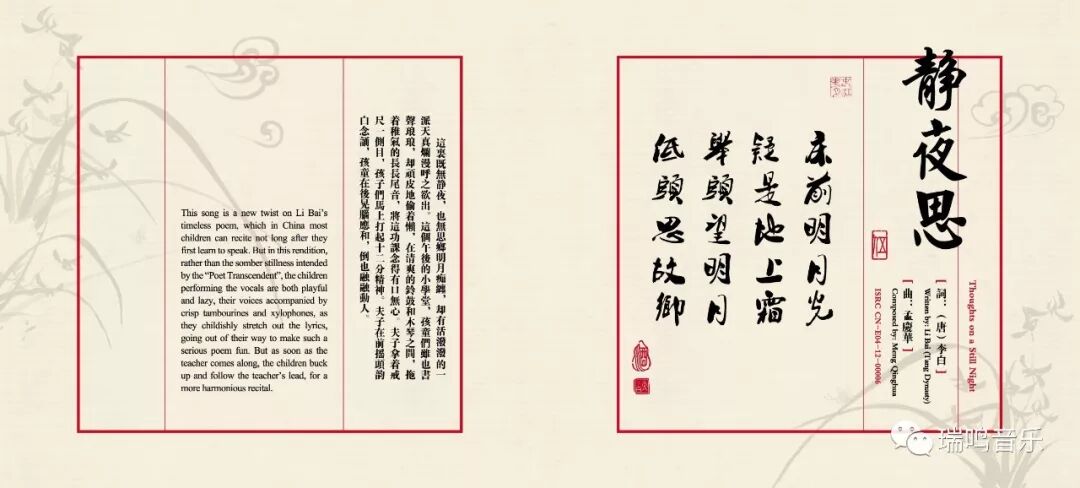 This song is a new twist on Li Bai's
timeless poem, which in China most
children can recite not long after they
first learn to speak. But in this rendition,
rather than the somber stillness intended
by the “Poet Transcendent”, the children
performing the vocals are both playful
and lazy, their voices accompanied by
crisp tambourines and xylophones, as
they childishly stretch out the lyrics,
going out of their way to make such a
serious poem fun. But as soon as the
teacher comes along, the children buck
up and follow the teacher's lead, for a
more harmonious recital.
這裏既無靜夜，也無思鄉明月痴纏，却有活潑潑的一
派天真爛漫呼之欲出。這個午後的小學堂，孩童們雖也書
聲琅琅，却頑皮地偷着懶，在清爽的鈴鼓和木琴之間，拖
着稚氣的長長尾音，將這功課念得有口無心。夫子拿着戒
尺一側目，孩子們馬上打起十二分精神。夫子在前摇頭韵
白念誦，孩童在後晃腦應和，倒也融融動人。
靜夜思
Thoughts on a Still Night
[ 詞：（唐）李白 ]
Written by: Li Bai (Tang Dynasty)
[ 曲：孟慶華 ]
Composed by: Meng Qinghua
ISRC CN-E04-12-00006
床前明月光
疑是地上霜
舉頭望明月
低頭思故鄉
瑞鸣音乐